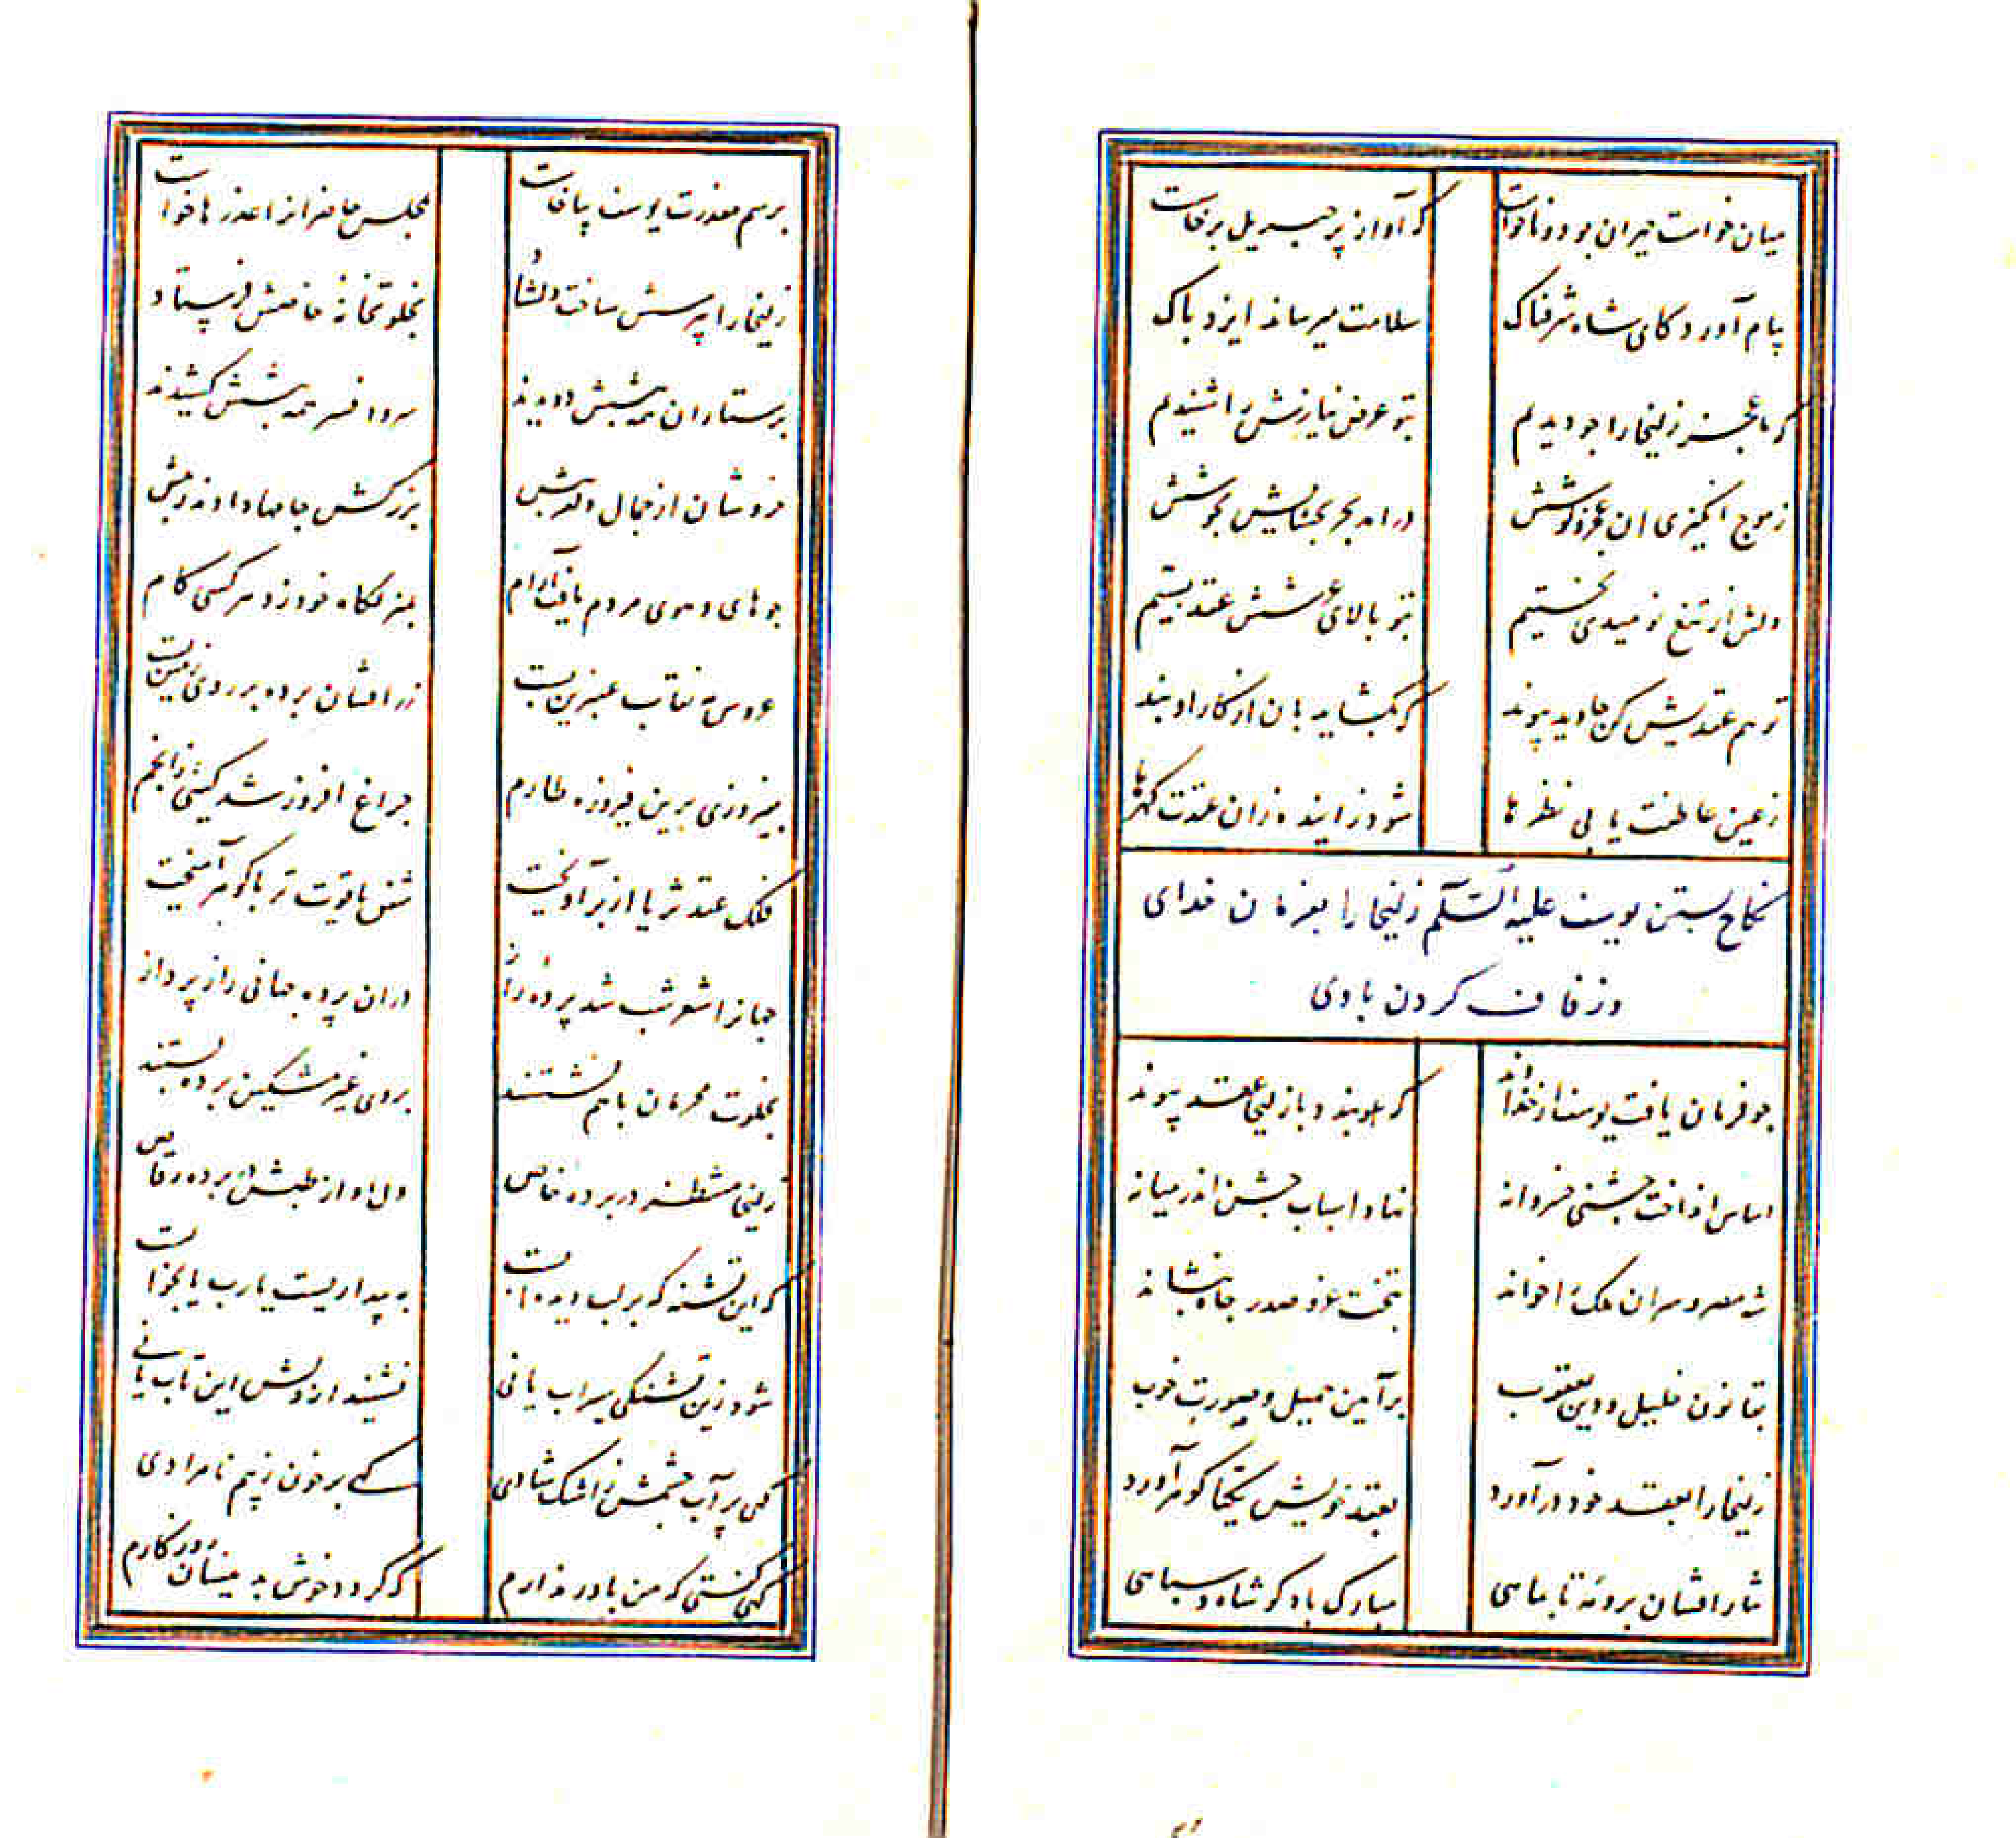 میان خواست حیران بود و ناخواست
که آواز پر جبریل برخاست
پیام آورد کای شاه شرفناک
سلامت میرساند ایزد پاک
که ما عجز زلیخا را چو دیدیم
بتو عرض نیازش را شنیدیم
ز موج انگیزی ان عجز و کوشش
درامد بحر بخشایش بجوشش
دلش از تیغ نومیدی نخستیم
بتو بالای عرشش عقد بستیم
تو هم عقدیش کن جاوید پیوند
که بکشاید بان از کار او بند
ز عین عاطفت یابی نظر ها
شود زاینده زان عقدت کهرها
نکاح بستن یوسف علیه السلام زلیخا را بفرمان خدای
و زفاف کردن با وی
چو فرمان یافت یوسف از خداوند
که بندد با زلیخا عقد پیوند
اساس انداخت جشنی خسروانه
نهاد اسباب جشن اندر میانه
شه مصر و سران ملک را خواند
بتخت عز و صدر جاه بنشاند
بقانون خلیل و دین یعقوب
بر آیین جمیل و صورت خوب
زلیخا را بعقد خود درآورد
بعقد خویش یکتا کوهر آورد
نثار افشان برو مه تا بماهی
مبارک باد کو شاه و سپاهی
برسم معذرت یوسف بپا خاست
بمجلس حاضرانرا عذر ها خواست
زلیخا را بپرسش ساخت دلشاد
بخلوتخانه خاصش فرستاد
پرستاران همه پیشش دویدند
سر و افسر همه پیشش کشیدند
خروشان از جمال دلفریبش
بزرکش جامها دادند زیبش
چو های و هوی مردم یافت آرام
بمنزلکاه خود زد هر کسی کام
عروس مه نقاب عنبرین بست
زرافشان پرده بر روی زمین بست
بفیروزی برین فیروزه طارم
چراغ افروز شد کیتی ز انجم
فلک عقد ثریا از بر آویخت
شفق یاقوت تر با کوهر آمیخت
جهانرا شعر شب شد پرده راز
دران پرده جهانی راز پرداز
بخلوت محرمان با هم نشستند
بروی غیر مشکین پرده بستند
زلیخا منتظر در پرده خاص
دل او از طپش در پرده رقاص
که این تشنه که بر لب دیده آبست
به بیداریست یارب یا بخوابست
شود زین تشنکی سیراب یا نی
نشیند از دلش این تاب یا نی
کهی پر آب چشمش ز اشک شادی
کهے پر خون ز بیم نامرادی
کهی کفتی که من باور ندارم
که کردد خوش بدینسان روزکارم